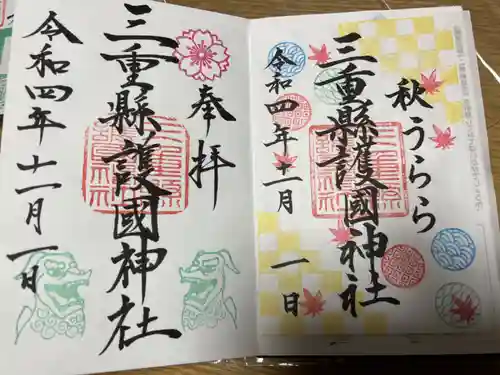 奉拝
三重縣護國神社
令和四年十一月一日
秋うらら
三重縣護国神社
令和四年十一月
一日